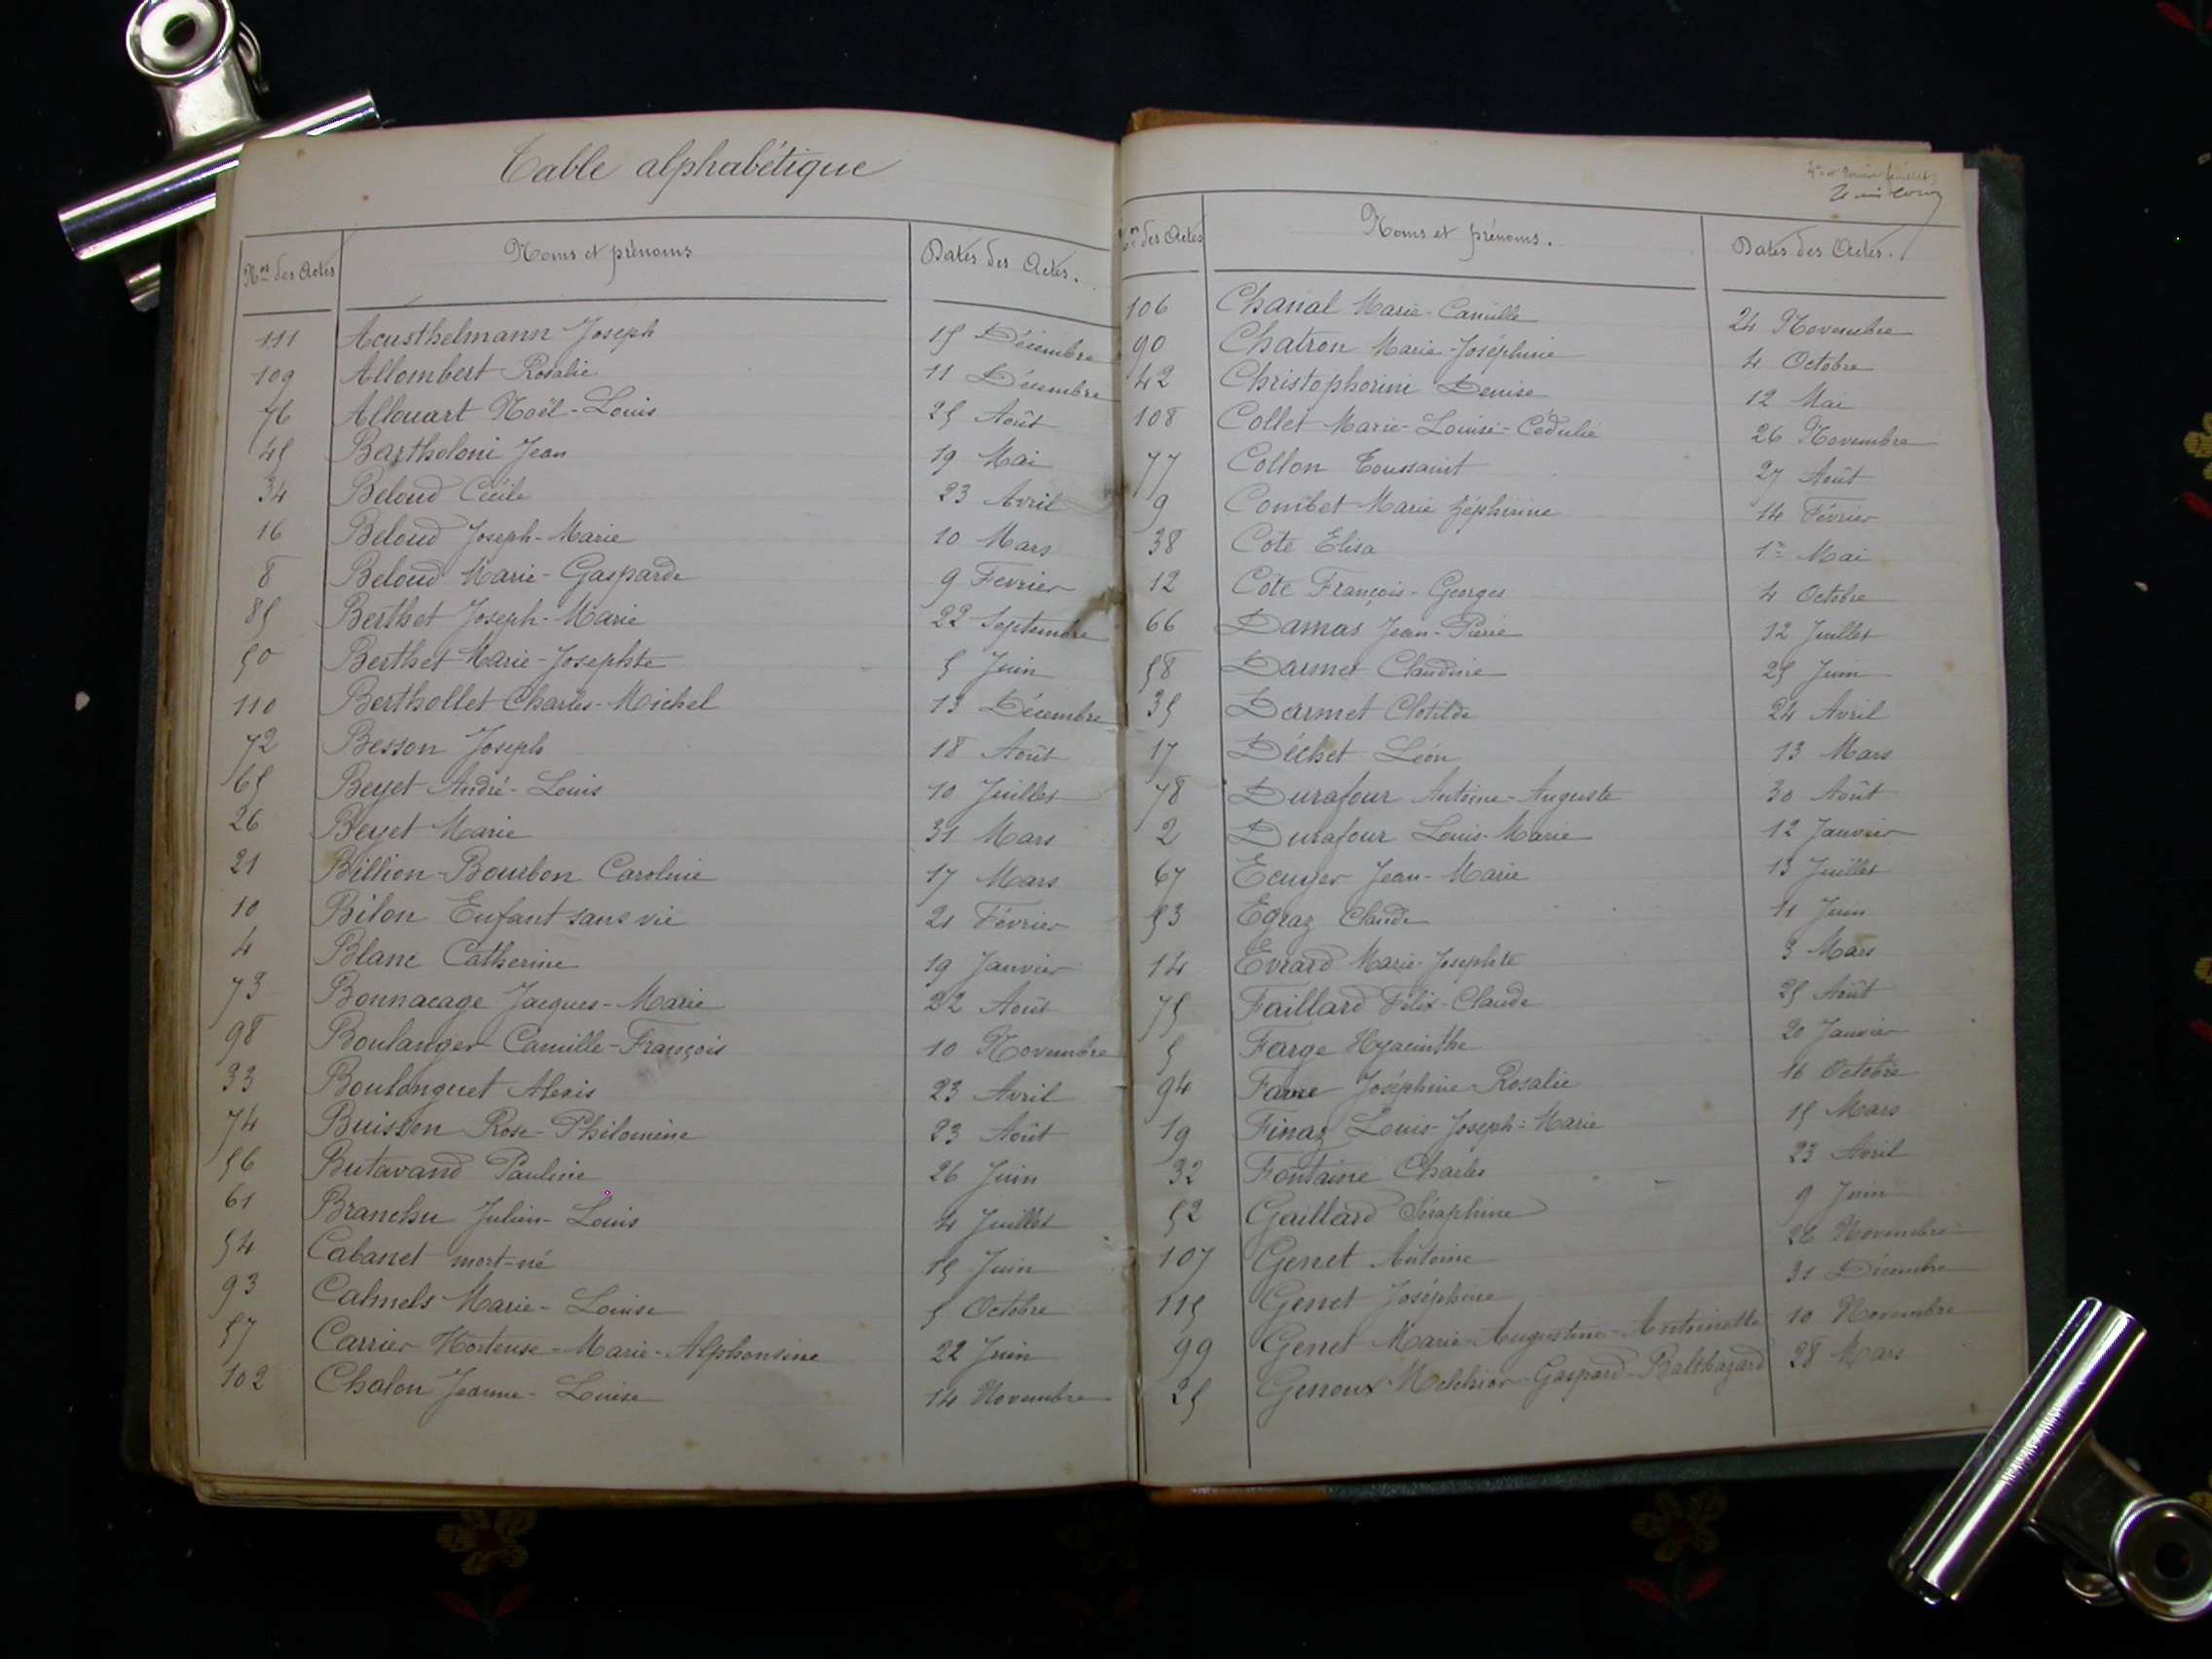 Table alphabétique
Nos des Actes Noms et prénoms Dates des Actes.
111 Acusthelmann Joseph 15 Décembre
109 Allombert Rosalie 11 Décembre
76 Allouart Noël-Louis 25 Août
45 Bartholoni Jean 19 Mai
34 Beloud Cécile 23 Avril
16 Beloud Joseph-Marie 10 Mars
8 Beloud Marie-Gasparde 9 Fevrier
85 Berthet Joseph-Marie 22 Septembre
50 Berthet Marie-Josephte 5 Juin
110 Berthollet Charles-Michel 13 Décembre
72 Besson Joseph 18 Août
65 Beyet André-Louis 10 Juillet
26 Beyet Marie 31 Mars
21 Billion-Bourbon Caroline 17 Mars
10 Bilon Enfant sans vie 21 Février
4 Blanc Catherine 19 Janvier
73 Bonnacage Jacques-Marie 22 Août
98 Boulanger Camille-François 10 Novembre
33 Boulonguet Alexis 23 Avril
74 Buisson Rose-Philomène 23 Août
56 Butavand Pauline 26 Juin
61 Branchu Julien-Louis 4 Juillet
54 Cabanet mort-né 15 Juin
93 Calmels Marie-Louise 5 Octobre
57 Carrier Hortense-Marie-Alphonsine 22 Juin
102 Chalon Jeanne-Louise 14 Novembre
Nos des Actes Noms et prénoms. Dates des Actes.
106 Chanal Marie-Camille 24 Novembre
90 Chatron Marie-Joséphine 4 Octobre
42 Christophorini Denise 12 Mai
108 Collet Marie-Louise-Cédulie 26 Novembre
77 Collon Toussaint 27 Août
9 Combet Marie Zéphirine 14 Février
38 Côte Elisa 1er Mai
12 Côte François-Georges 4 Octobre
66 Damas Jean-Pierre 12 Juillet
58 Darmet Claudine 25 Juin
35 Darmet Clotilde 24 Avril
17 Déchet Léon 13 Mars
78 Durafour Antoine-Auguste 30 Août
2 Durafour Louis-Marie 12 Janvier
67 Ecuyer Jean-Marie 13 Juillet
53 Egraz Claude 11 Juin
14 Evrard Marie-Josephte 3 Mars
75 Faillard Félix-Claude 25 Août
5 Farge Hyacinthe 20 Janvier
94 Favre Joséphine-Rosalie 16 Octobre
19 Finaz Louis-Joseph-Marie 15 Mars
32 Fontaine Charles 23 Avril
52 Gaillard Séraphine 9 Juin
107 Genet Antoine 26 Novembre
115 Genet Joséphine 31 Décembre
99 Genet Marie-Augustine-Antoinette 10 Novembre
25 Genoux Melchior-Gaspard-Balthazard 28 Mars